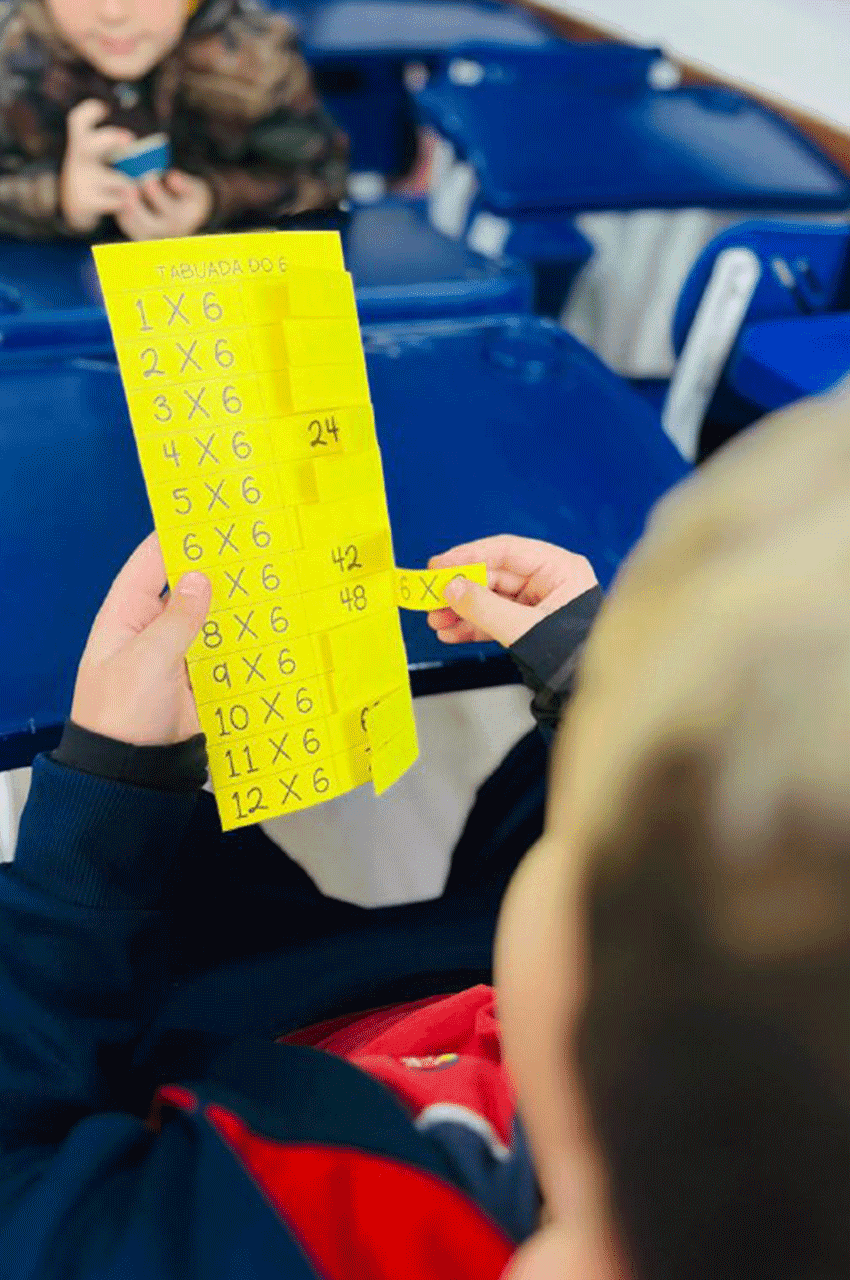 TABUADA DO 6
1 X 6
2 X 6
3 X 6
4 X 6 24
5 X 6
6 X 6
X 6 42
8 X 6 48 6 X
9 X 6
10 X 6
11 X 6 6
12 X 6